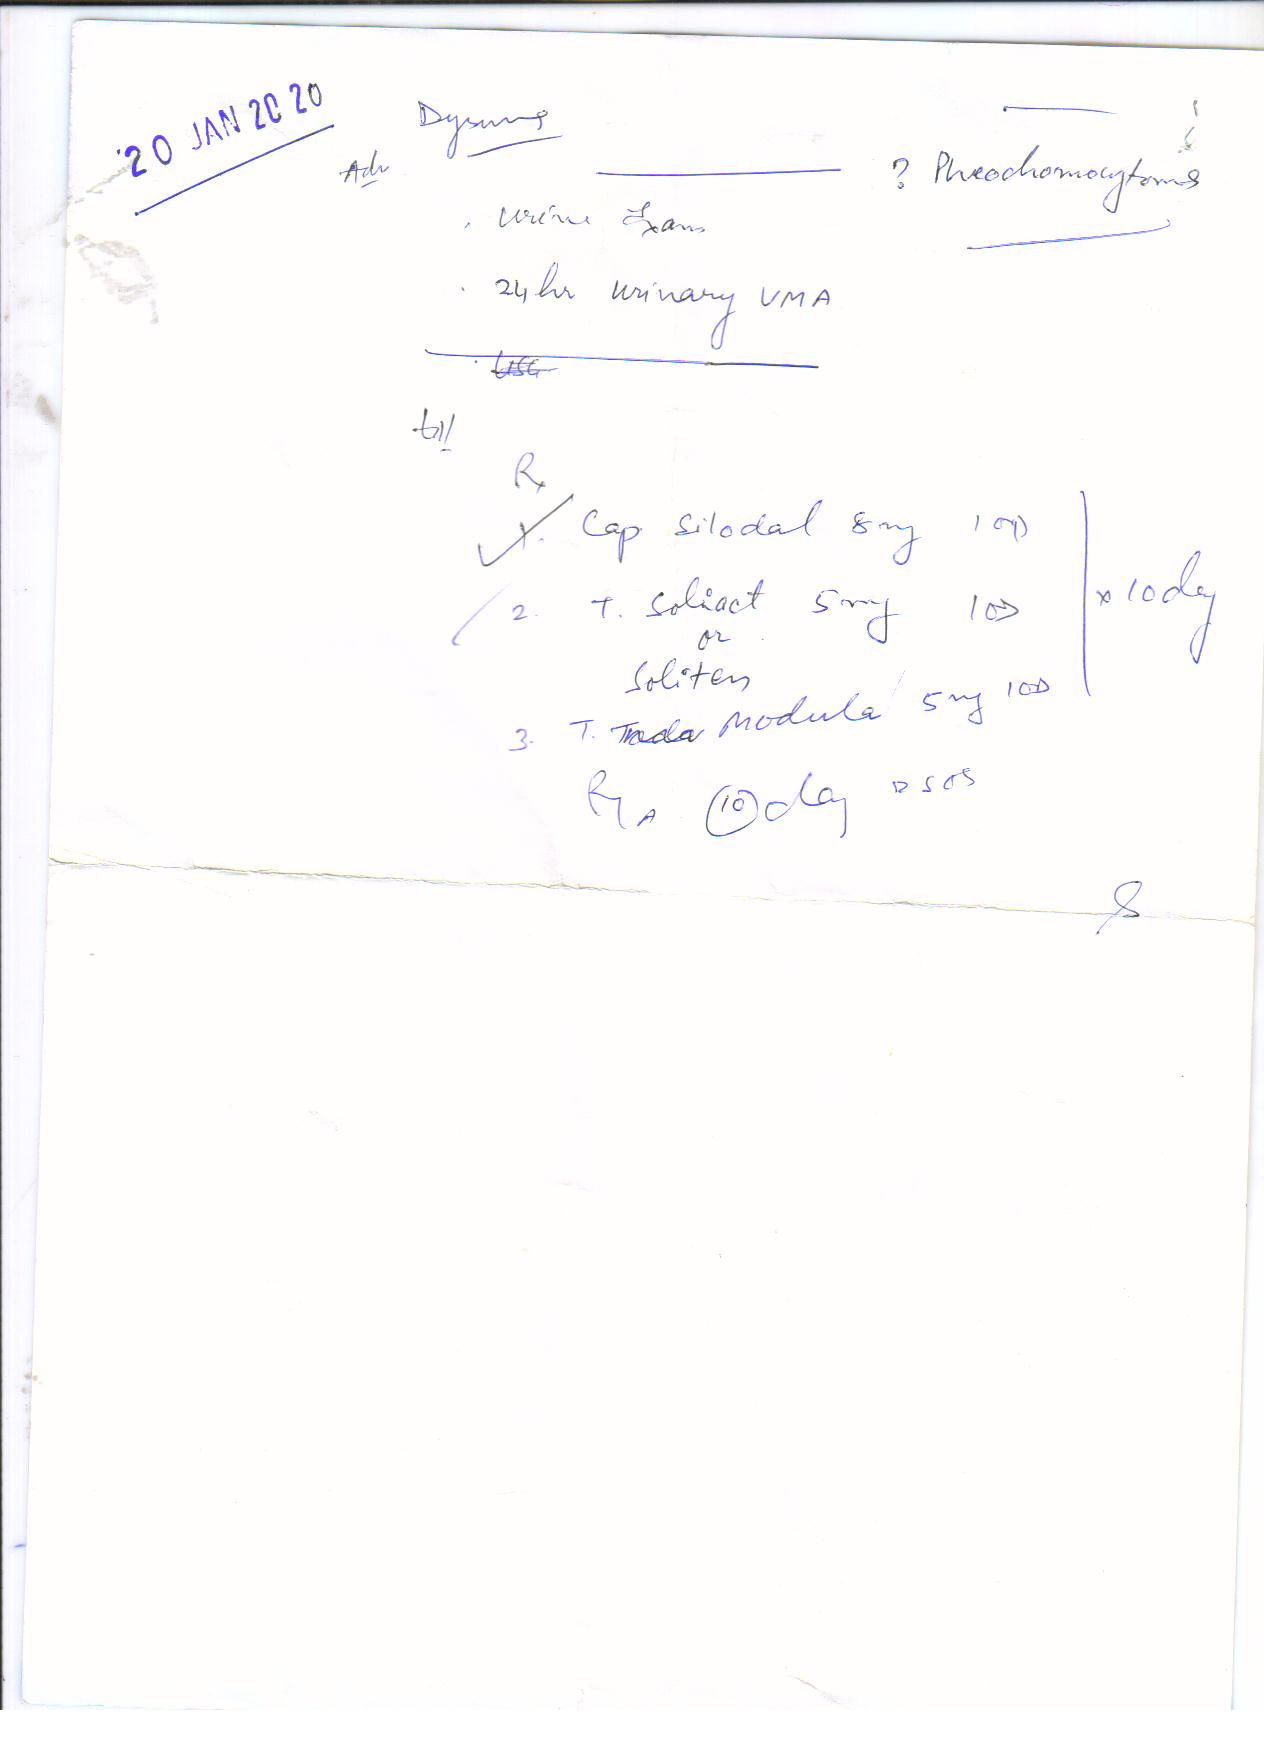 20 JAN 2020
Dysuria
? Pheochomocytoma
Adv
. Urine Exam
. 24 hr urinary VMA
. USG
Rx
1. Cap Silodal 8mg 1 OD
2. T. Soliact 5mg 1 OD
or
Soliten
x 10 day
3. T. Tada Modula 5mg 1 OD
R/A 10 day SOS